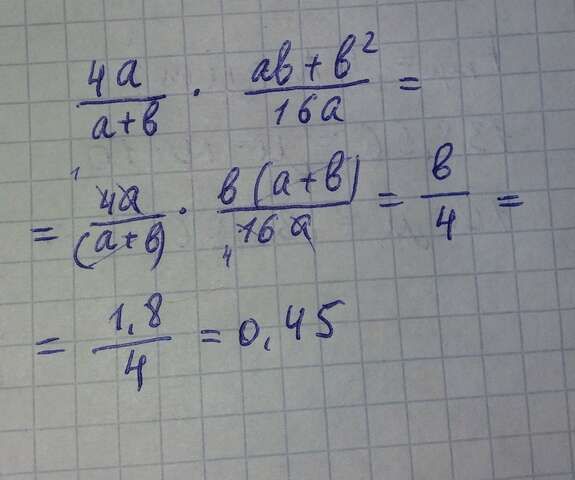 4a/(a+b) · (ab+b²)/16a =
= 4a/(a+b) · b(a+b)/16a = b/4 =
= 1,8/4 = 0,45